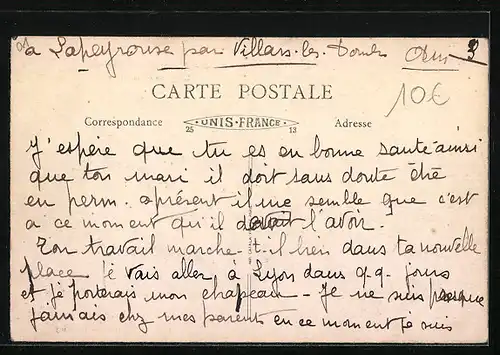 a Lapeyrouse par Villars-les-Dombes Ain 3
CARTE POSTALE
10€
Correspondance UNIS-FRANCE Adresse
25 13
J'espère que tu es en bonne santé ainsi
que ton mari il doit sans doute être
en perm. apérsent il me semble que c'est
a ce moment qu'il devait l'avoir.
Ton travail marche-t-il bien dans ta nouvelle
place je vais aller à Lyon dans q.q. jours
et je porterais mon chapeau - Je ne suis presque
jamais chez mes parents en ce moment je suis